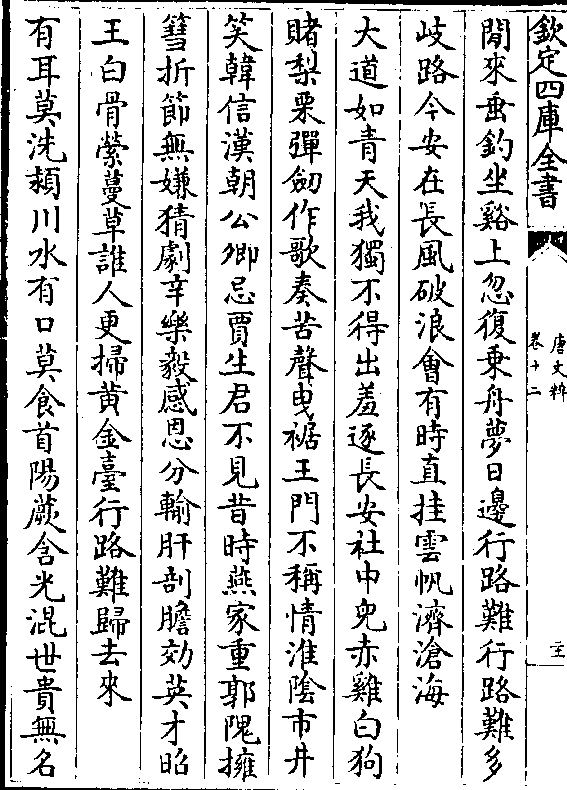 欽定四庫全書
唐文粹
卷十二
閒來垂釣坐谿上忽復乗舟夢日邊行路難行路難多
岐路今安在長風破浪會有時直挂雲帆濟滄海
大道如青天我獨不得出羞逐長安社中兒赤雞白狗
賭梨栗彈劒作歌奏苦聲曳裾王門不稱情淮陰市井
笑韓信漢朝公卿忌賈生君不見昔時燕家重郭隗擁
篲折節無嫌猜劇辛樂毅感恩分輸肝剖膽効英才昭
王白骨縈蔓草誰人更掃黄金臺行路難歸去來
有耳莫洗潁川水有口莫食首陽蕨含光混世貴無名